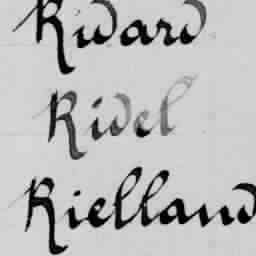 Rivard
Ridel
Rielland